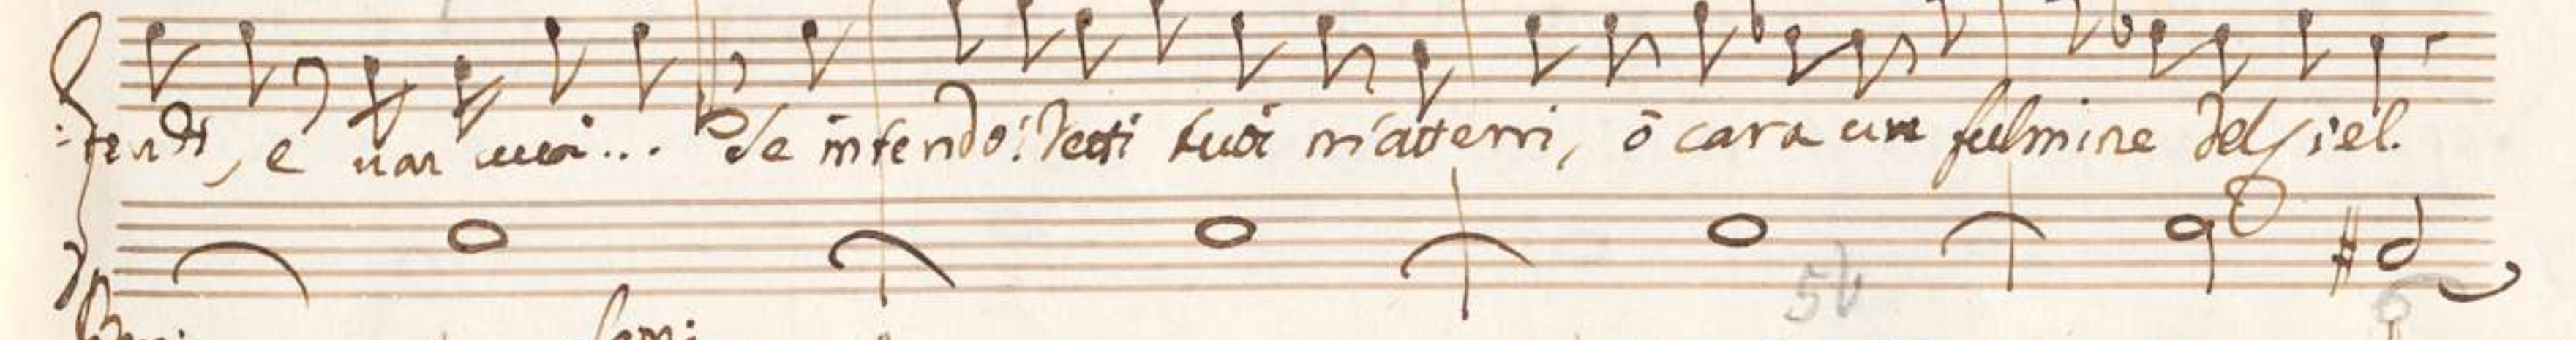 :tendi, e uan uuoi... Se intendo! Detti tuoi m'atterri, ò cara un fulmine del Ciel.
5b
6